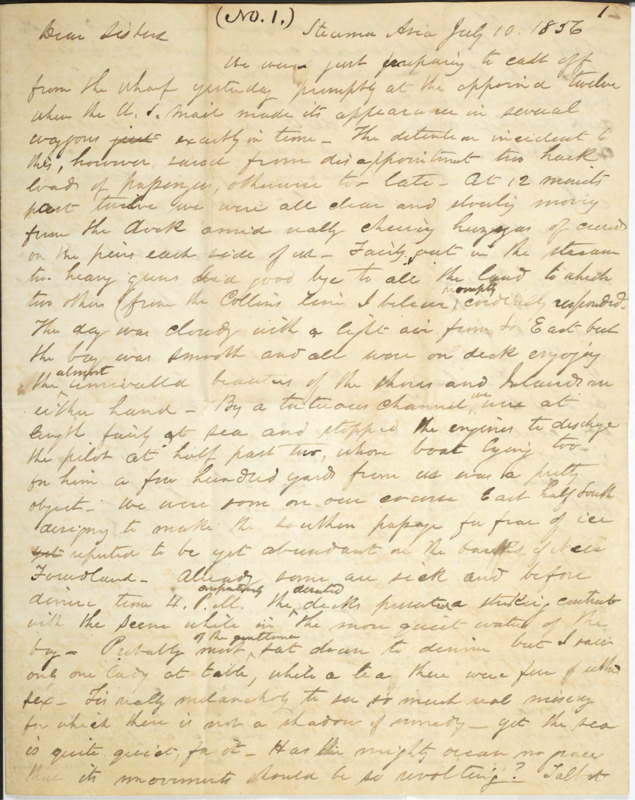 (No. 1.) 1
Dear Sisters Steamer Asia July 10. 1856
We were just preparing to cast off
from the wharf yesterday promptly at the appoined twelve
when the U. S. Mail made its appearance in several
waggons just exactly in time - The detention incident to
this, however, saved from disappointment two hack
loads of passengers, otherwise too late - At 12 minutes
past twelve we were all clear and slowly moving
from the dock amid really cheering huzzas of crowds
on the piers each side of us - Fairly out in the stream
two heavy guns bid good bye to all the land to which
two others (from the Collins line I believe) promptly cordially responded.
The day was cloudy with a light air from So East but
the bay was smooth and all were on deck enjoying
the almost unrivalled beauties of the shores and Islands on
either hand - By a tortuous channel, we were at
length fairly at sea and stopped the engines to discharge
the pilot at half past two, whose boat lying too
for him a few hundred yards from us was a pretty
object - We were soon on our course East half South
designing to make the southern passage for fear of ice
reported to be yet abundant on the banks of New
Foundland - Already some are sick and before
dinner time 4. P.M. the comparatively deserted decks presented a striking contrast
with the scene while in the more quiet water of the
bay - Probably most of the gentlemen sat down to dinner but I saw
only one lady at table, while at tea there were few of either
sex - Tis really melancholy to see so much real misery
for which there is not a shadow of remedy - yet the sea
is quite quiet, for it - Has the mighty ocean no peace
that its movements should be so revolting? Talbot